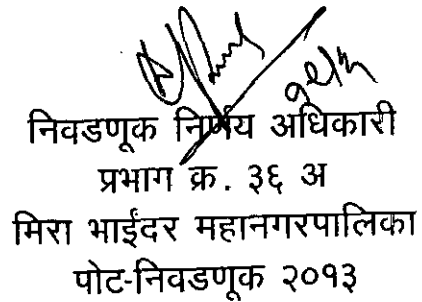 निवडणूक निर्णय अधिकारी
प्रभाग क्र. ३६ अ
मिरा भाईंदर महानगरपालिका
पोट-निवडणूक २०१३